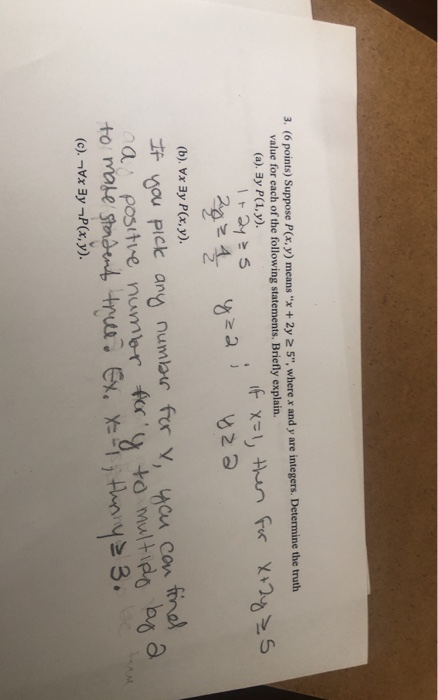 3. (6 points) Suppose P(x, y) means "x + 2y ≥ 5", where x and y are integers. Determine the truth
value for each of the following statements. Briefly explain.
(a). ∃y P(1, y).
1 + 2y ≥ 5 ; if x=1, then for x+2y ≥ 5
2y/2 ≥ 4/2 y ≥ 2 y ≥ 2
(b). ∀x ∃y P(x, y).
If you pick any number for x, you can find
a positive number for y to multiply by 2
to make true. Ex. x=-1, then y ≥ 3.
(c). ¬∀x ∃y ¬P(x, y).